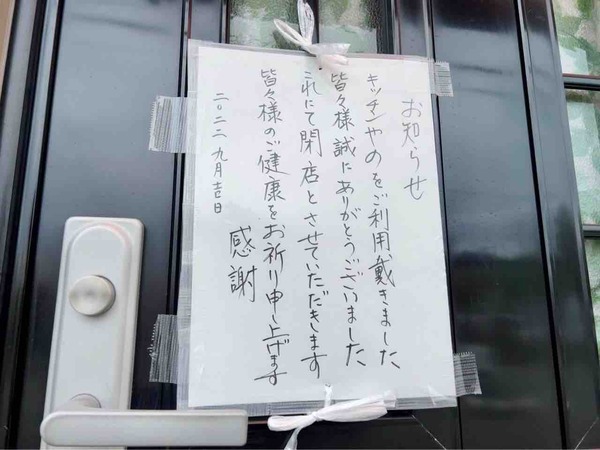 お知らせ
キッチンやのをご利用戴きました
皆々様誠にありがとうございました
これにて閉店とさせていただきます
皆々様のご健康をお祈り申し上げます
感謝
二〇二二 九月吉日